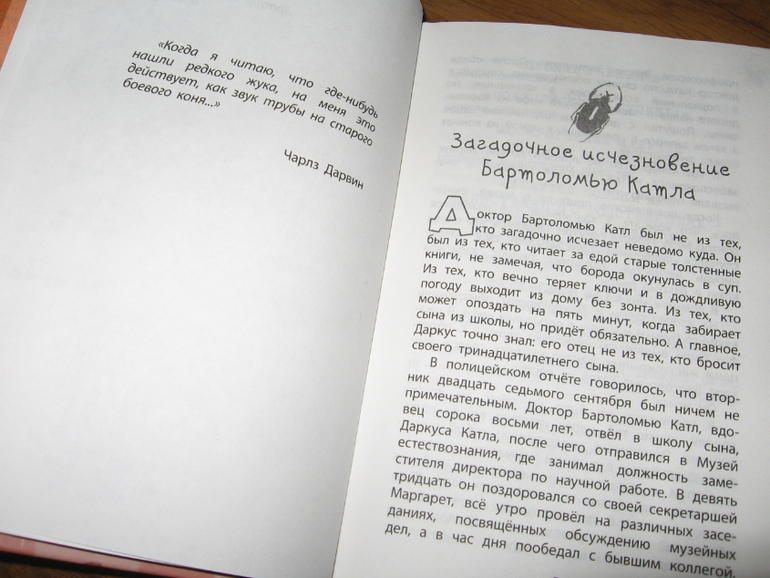 «Когда я читаю, что где-нибудь
нашли редкого жука, на меня это
действует, как звук трубы на старого
боевого коня...»
Чарлз Дарвин
1
Загадочное исчезновение
Бартоломью Катла
Доктор Бартоломью Катл был не из тех,
кто загадочно исчезает неведомо куда. Он
был из тех, кто читает за едой старые толстенные
книги, не замечая, что борода окунулась в суп.
Из тех, кто вечно теряет ключи и в дождливую
погоду выходит из дому без зонта. Из тех, кто
может опоздать на пять минут, когда забирает
сына из школы, но придёт обязательно. А главное,
Даркус точно знал: его отец не из тех, кто бросит
своего тринадцатилетнего сына.
В полицейском отчёте говорилось, что втор-
ник двадцать седьмого сентября был ничем не
примечательным. Доктор Бартоломью Катл, вдо-
вец сорока восьми лет, отвёл в школу сына,
Даркуса Катла, после чего отправился в Музей
естествознания, где занимал должность заме-
стителя директора по научной работе. В девять
тридцать он поздоровался со своей секретаршей
Маргарет, всё утро провёл на различных засе-
даниях, посвящённых обсуждению музейных
дел, а в час дня пообедал с бывшим коллегой,